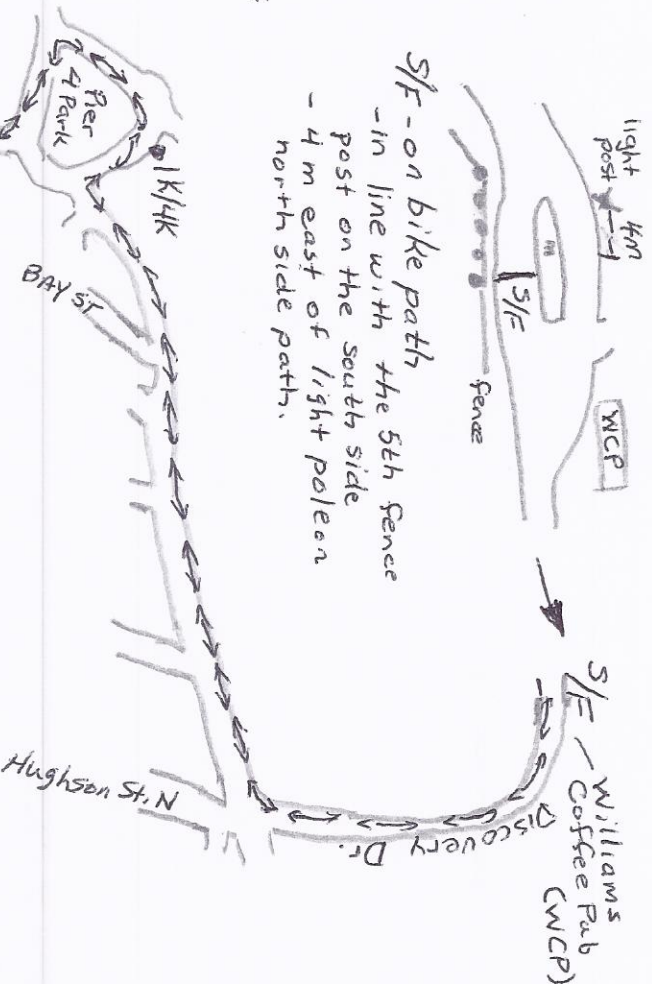 light
post
4m
S/F
WCP
fence
S/F - on bike path
- in line with the 5th fence
post on the south side
- 4 m east of light pole on
north side path.
S/F - Williams
Coffee Pub
(WCP)
Discovery Dr.
Hughson St. N
BAY ST
1K/4K
Pier
4
Park